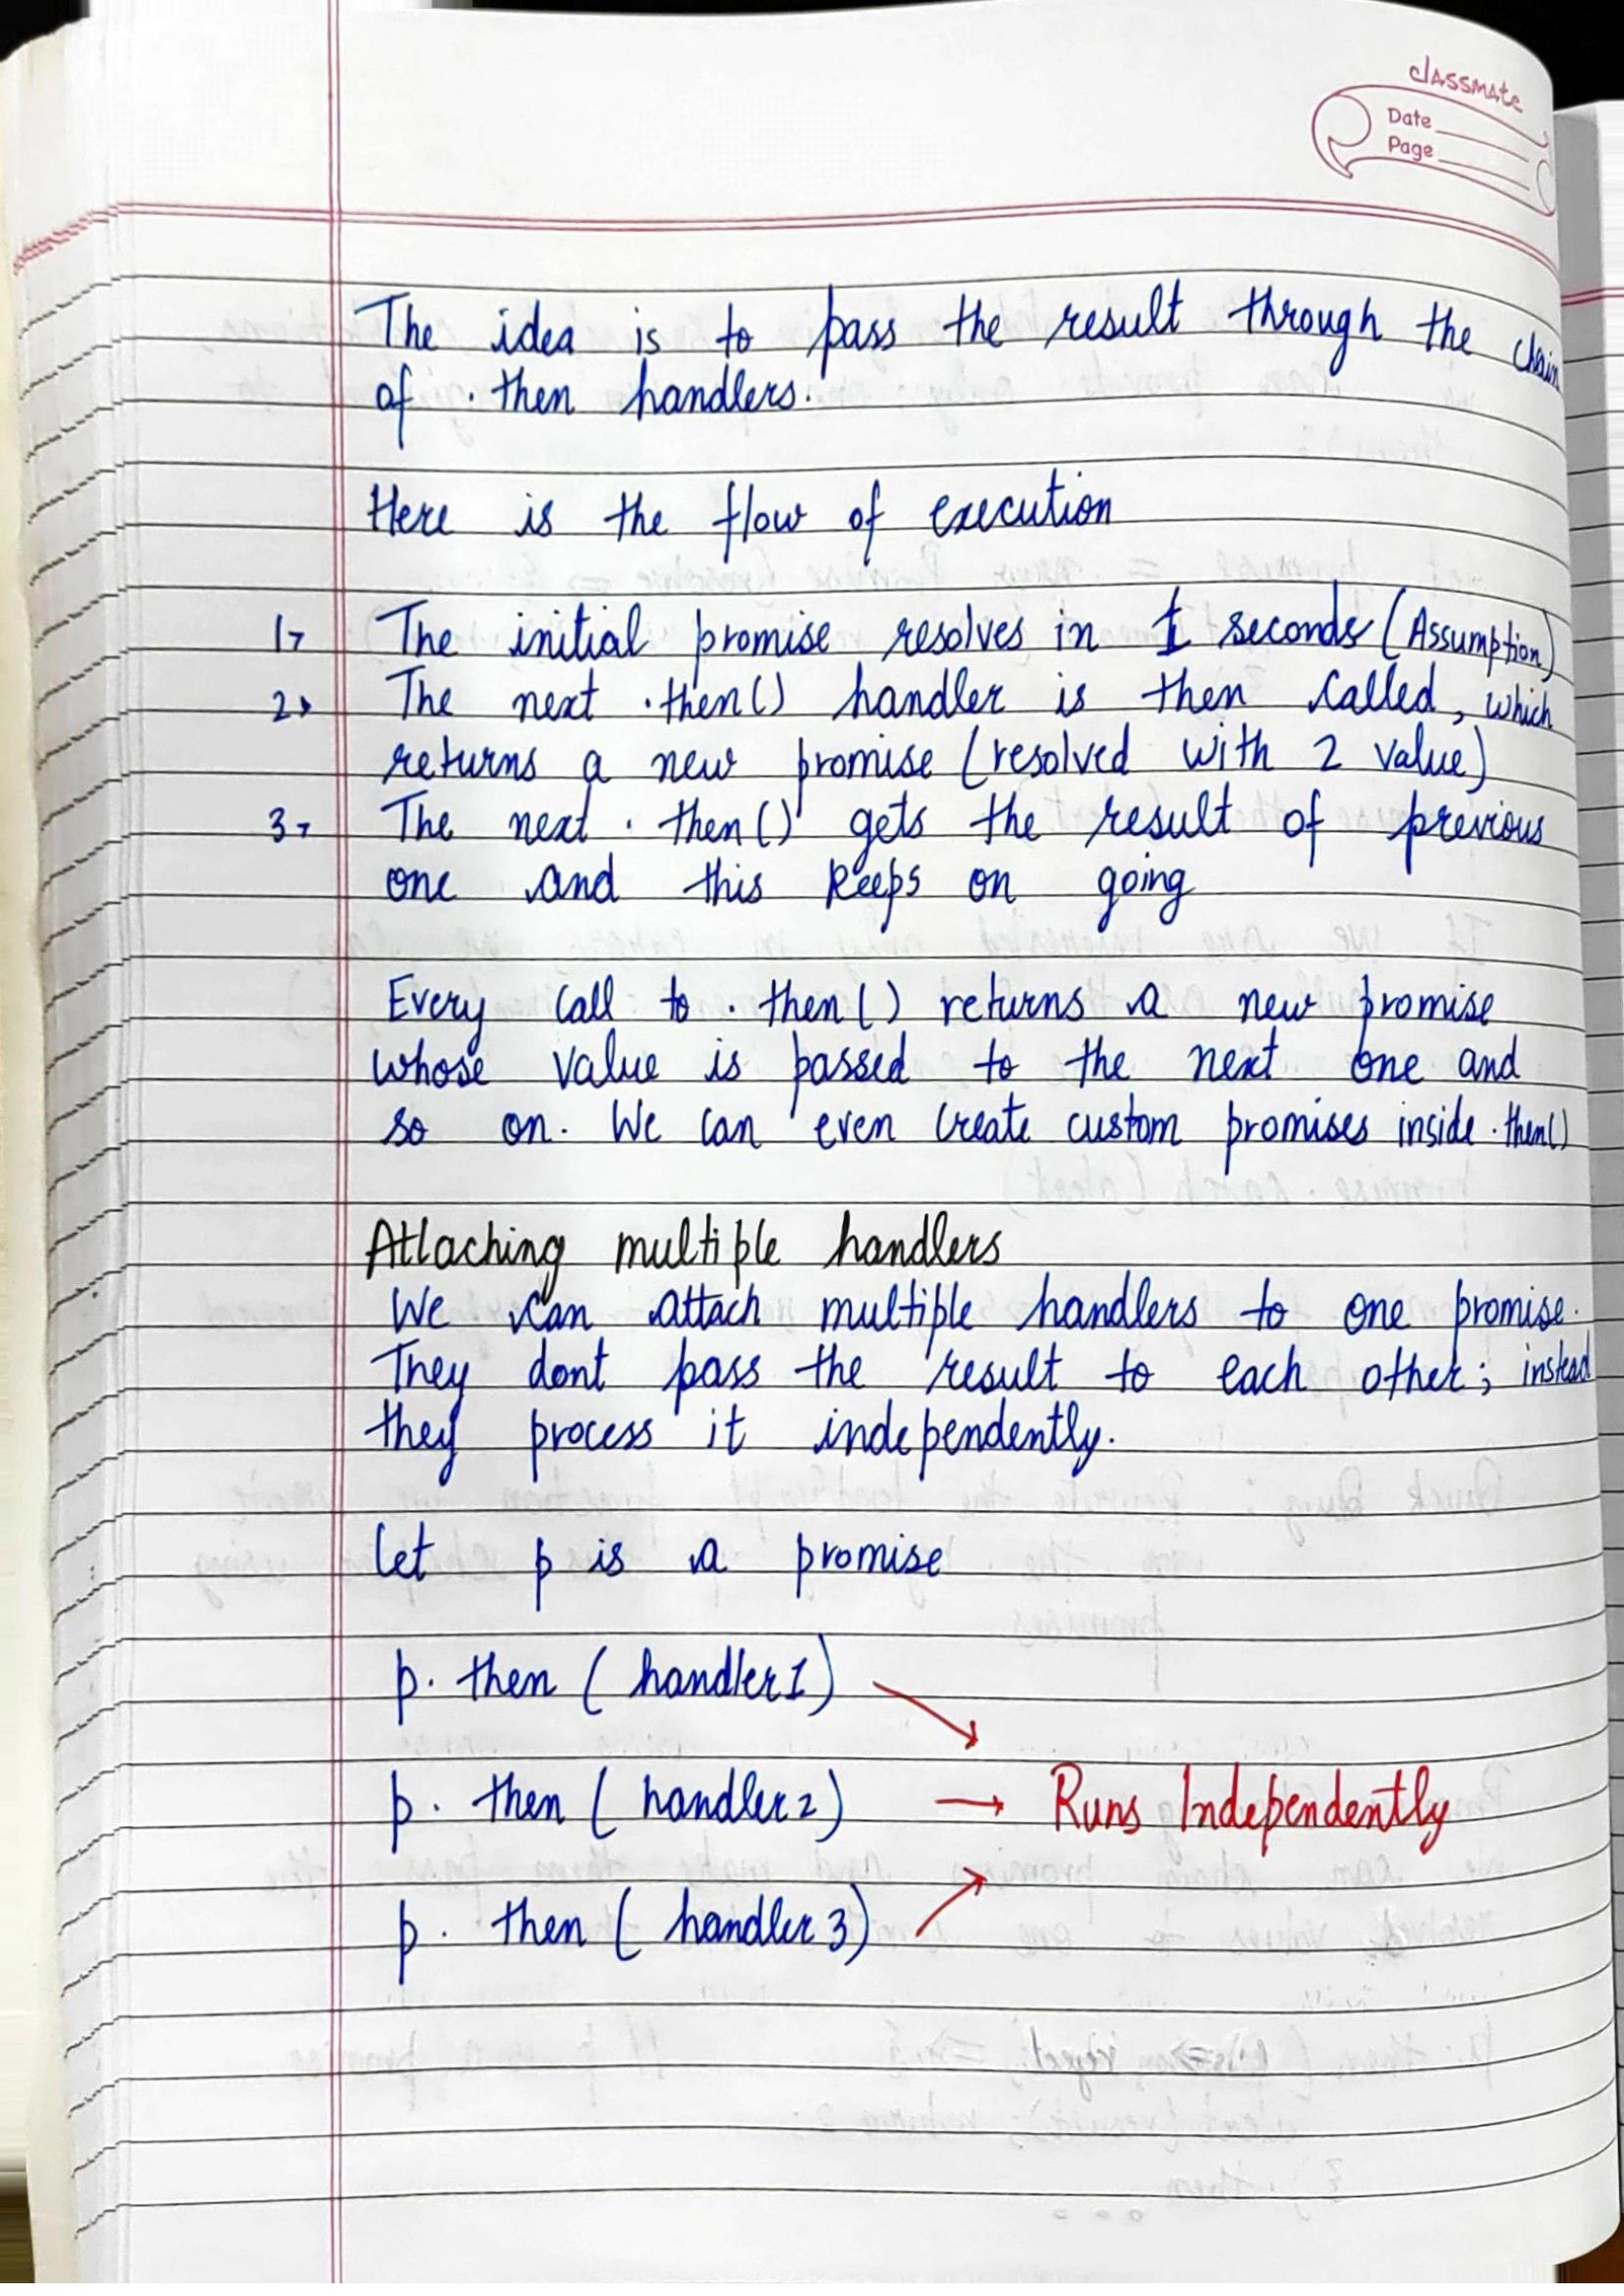 classmate
Date
Page
The idea is to pass the result through the chain
of .then handlers.
Here is the flow of execution
1> The initial promise resolves in 1 seconds (Assumption)
2> The next .then() handler is then called, which
returns a new promise (resolved with 2 value)
3> The next .then() gets the result of previous
one and this keeps on going
Every call to .then() returns a new promise
whose value is passed to the next one and
so on. We can even create custom promises inside .then()
Attaching multiple handlers
We can attach multiple handlers to one promise.
They dont pass the result to each other; instead
they process it independently.
let p is a promise
p. then ( handler1)
p. then ( handler2) → Runs Independently
p. then ( handler 3)